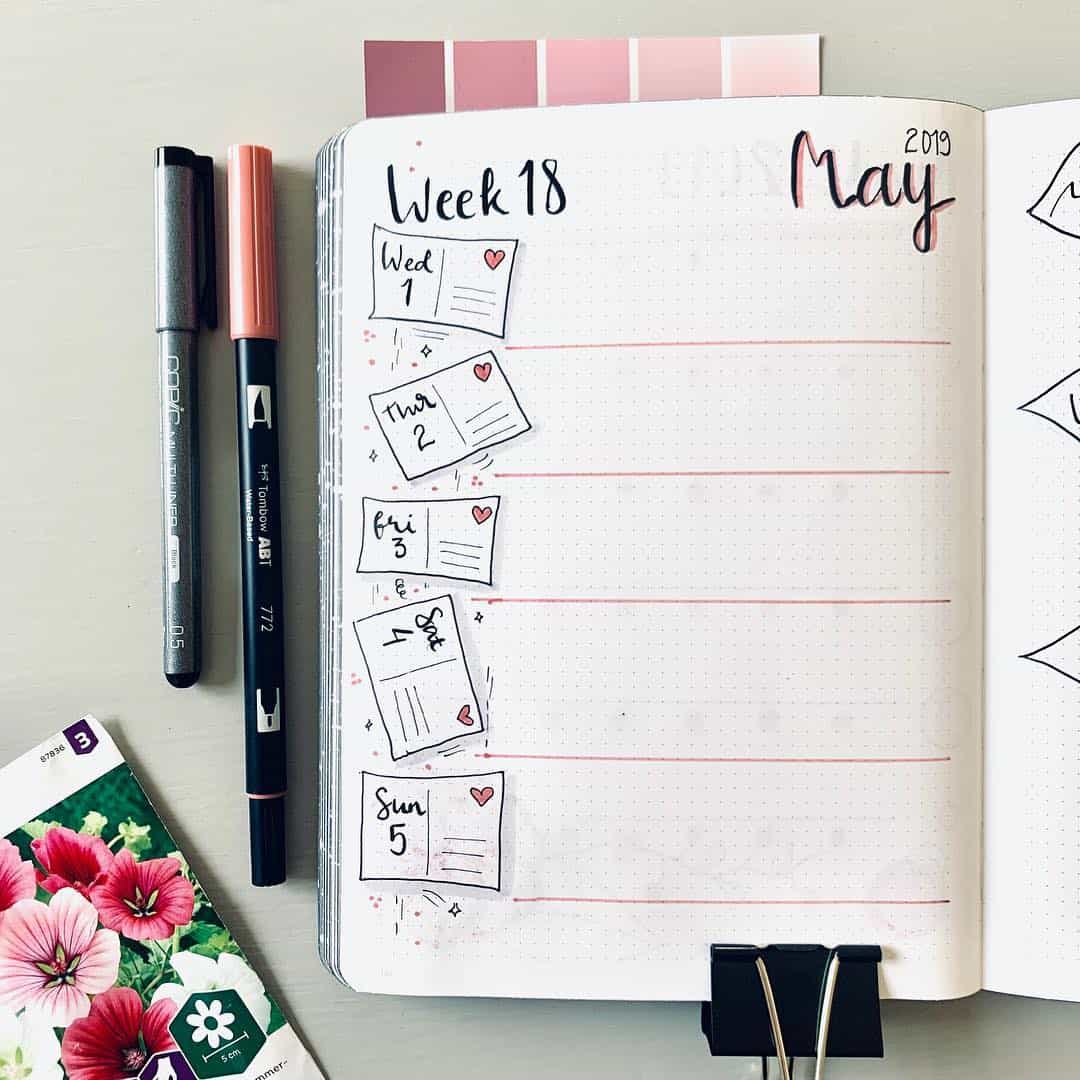 2019
Week 18
May
Wed
1
Thr
2
Fri
3
Sat
4
Sun
5
COPIC MULTILINER
Black
0.5
Tombow ABT
Water-Based
772
87836
3
5 cm